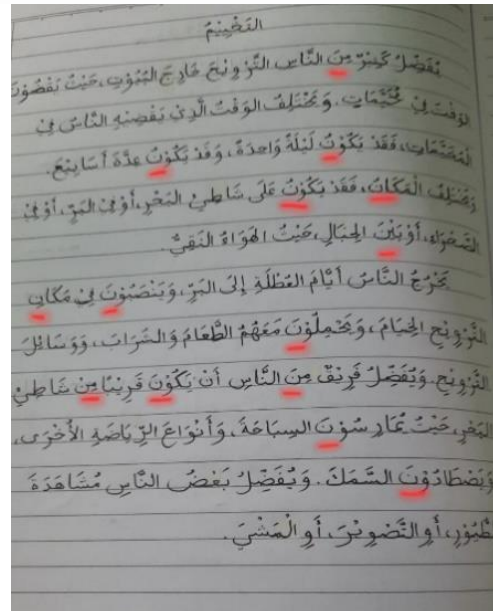 التَّخْيِيْمُ
يُفَضِّلُ كَثِيْرٌ مِنَ النَّاسِ التَّرْوِيْحَ خَارِجَ البُيُوْتِ، حَيْثُ يَقْضُوْنَ
الوَقْتَ فِيْ مُخَيَّمَاتٍ. وَيَخْتَلِفُ الوَقْتُ الَّذِيْ يَقْضِيْهِ النَّاسُ فِيْ
المُخَيَّمَاتِ، فَقَدْ يَكُوْنُ لَيْلَةً وَاحِدَةً، وَقَدْ يَكُوْنُ عِدَّةَ أَسَابِيْعَ.
وَيَخْتَلِفُ المَكَانُ، فَقَدْ يَكُوْنُ عَلَى شَاطِئِ البَحْرِ، أَوْ فِيْ البَرِّ، أَوْ فِيْ
الصَّحْرَاءِ، أَوْ بَيْنَ الجِبَالِ، حَيْثُ الهَوَاءُ النَّقِيُّ.
يَخْرُجُ النَّاسُ أَيَّامَ العُطْلَةِ إِلَى البَرِّ، وَيَنْصِبُوْنَ فِيْ مَكَانِ
التَّرْوِيْحِ الخِيَامَ، وَيَحْمِلُوْنَ مَعَهُمُ الطَّعَامَ وَالشَّرَابَ، وَوَسَائِلَ
التَّرْوِيْحِ. وَيُفَضِّلُ فَرِيْقٌ مِنَ النَّاسِ أَنْ يَكُوْنَ قَرِيْبًا مِنْ شَاطِئِ
البَحْرِ، حَيْثُ يُمَارِسُوْنَ السِبَاحَةَ، وَأَنْوَاعَ الرِّيَاضَةِ الأُخْرَى،
وَيَصْطَادُوْنَ السَّمَكَ. وَيُفَضِّلُ بَعْضُ النَّاسِ مُشَاهَدَةَ
الطُّيُوْرِ، أَوِ التَّصْوِيْرَ، أَوِ الْمَشْيَ.